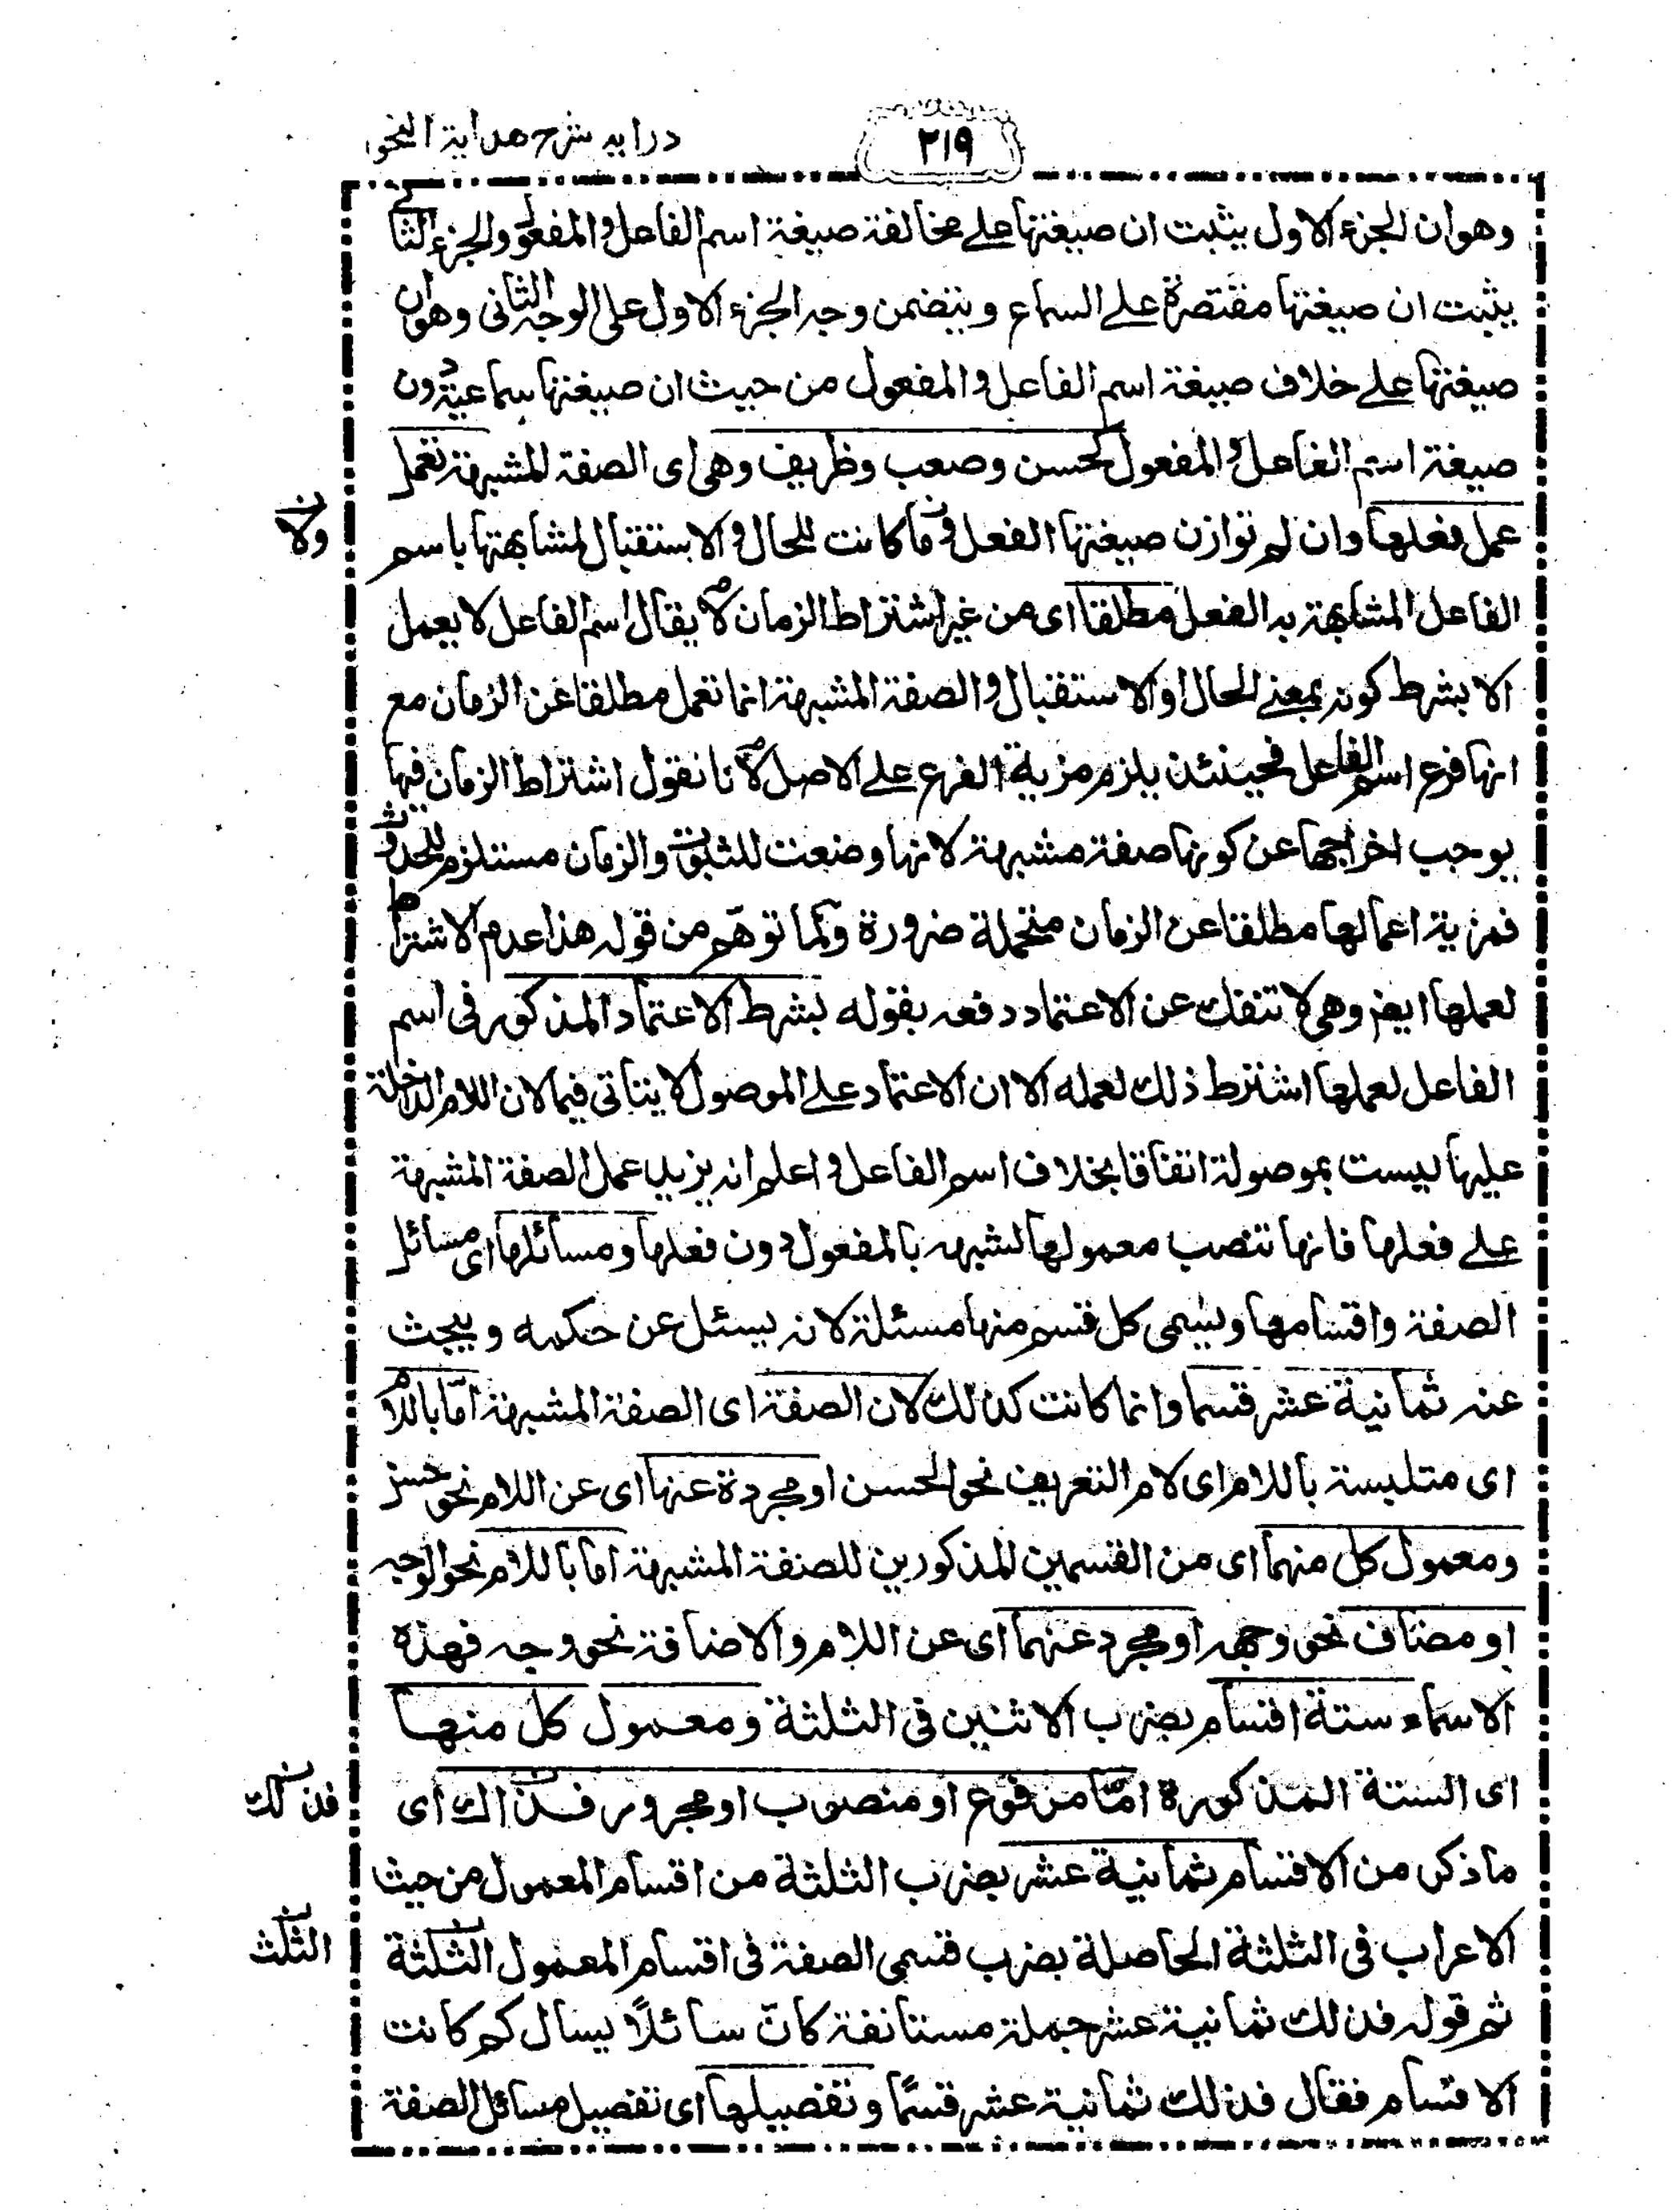 درايه شرح هداية النحو
٢١٩
وهو ان الجزء الاول يثبت ان صيغتها على مخالفة صيغة اسم الفاعل والمفعول والجزء الثانى
يثبت ان صيغتها مقتصرة على السماع ويتضمن وجه الجزء الاول على الوجه الثانى وهو ان
صيغتها على خلاف صيغة اسم الفاعل والمفعول من حيث ان صيغتها سماعية دون
صيغة اسم الفاعل والمفعول كحسن وصعب وظريف وهى اى الصفة المشبهة تعمل
عمل فعلها وان لم توازن صيغتها الفعل وما كانت للحال والاستقبال لمشابهتها باسم
ولا
الفاعل المشابهة به الفعل مطلقا اى من غير اشتراط الزمان لا يقال اسم الفاعل لا يعمل
الا بشرط كونه بمعنى الحال او الاستقبال والصفة المشبهة انما تعمل مطلقا عن الزمان مع
انها فرع اسم الفاعل فحينئذ يلزم مزية الفرع على الاصل لانا نقول اشتراط الزمان فيها
يوجب اخراجها عن كونها صفة مشبهة لانها وضعت للثبوت والزمان مستلزم للحدوث
فمزية اعمالها مطلقا عن الزمان متحملة ضرورة ولما توهم من قوله هذا عدم الاشتراط
لعملها ايضم وهى لا تنفك عن الاعتماد دفعه بقوله بشرط الاعتماد المذكور فى اسم
الفاعل لعملها اشترط ذلك لعمله الا ان الاعتماد على الموصول لا يتاتى فيها لان اللام الداخلة
عليها ليست بموصولة اتفاقا بخلاف اسم الفاعل واعلم انه يزيد عمل الصفة المشبهة
على فعلها فانها تنصب معمولها لشبهه بالمفعول دون فعلها ومسائلها اى مسائل
الصفة واقسامها ويسمى كل قسم منها مسئلة لانه يسئل عن حكمه ويبحث
عنه ثمانية عشر قسما وانما كانت كذلك لان الصفة اى الصفة المشبهة امّا باللام
اى متلبسة باللام اى لام التعريف نحو الحسن او مجردة عنها اى عن اللام نحو حسن
ومعمول كل منهما اى من القسمين المذكورين للصفة المشبهة اما باللام نحو الوجه
او مضاف نحو وجهه او مجرد عنهما اى عن اللام والاضافة نحو وجه فهذه
الاسماء ستة اقسام بضرب الاثنين فى الثلثة ومعمول كل منها
اى الستة المذكورة امّا مرفوع او منصوب او مجرور فذالك اى
فذلك
ماذكر من الاقسام ثمانية عشر بضرب الثلثة من اقسام المعمول من حيث
الاعراب فى الثلثة الحاصلة بضرب قسمى الصفة فى اقسام المعمول الثلثة
الثلث
ثم قوله فذلك ثمانية عشر جملة مستانفة كانّ سائلًا يسال كم كانت
الاقسام فقال فذلك ثمانية عشر قسمًا وتفصيلها اى تفصيل مسائل الصفة